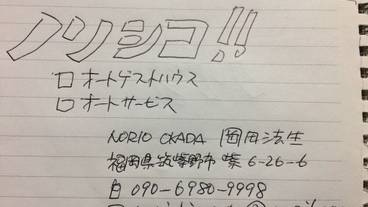 ノリシコ!!
□ オートゲストハウス
□ オートサービス
NORIO OKADA 岡田法生
福岡県筑紫野市 紫 6-26-6
090-6980-9998